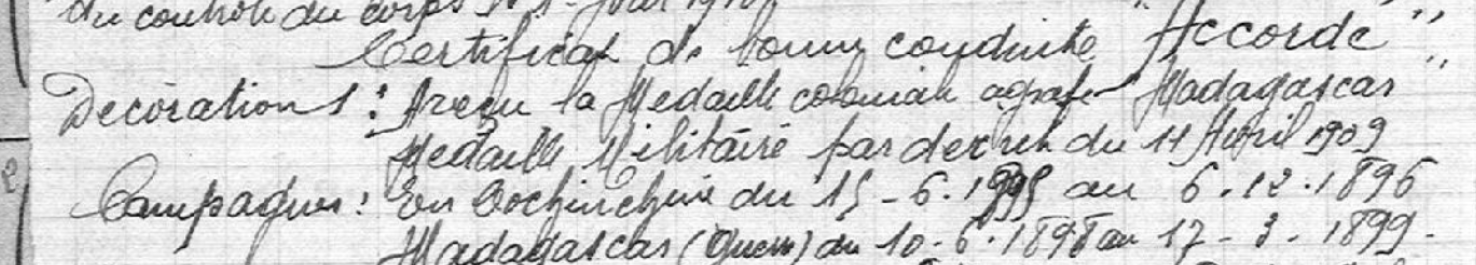 du contrôle du corps le 1
Certificat de bonne conduite "Accordé"
Décorations : A reçu la Médaille coloniale agrafe "Madagascar"
Médaille Militaire par décret du 11 Avril 1909
Campagnes : En Cochinchine du 15-6-1895 au 6.12.1896
Madagascar (Guerre) du 10-6-1898 au 17-3-1899-